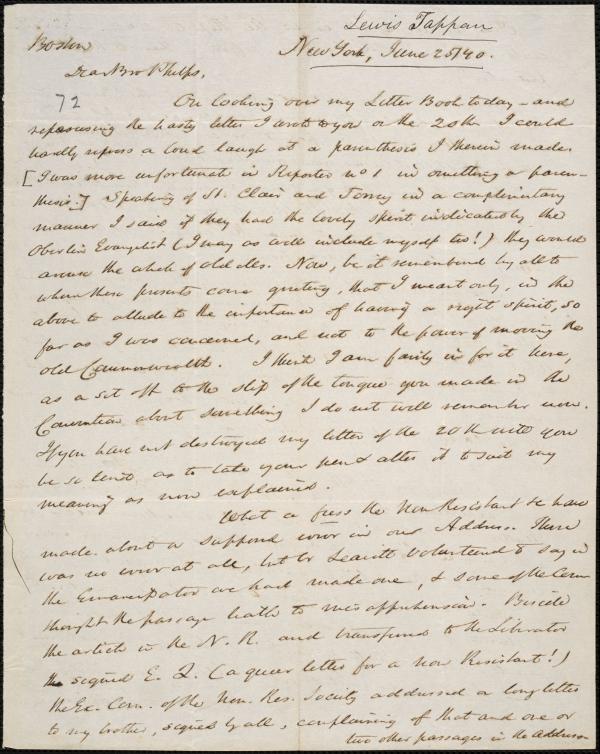 Lewis Tappan
Boston
New York, June 25/40.
Dear Bro Phelps,
72
On looking over my Letter Book to day - and
reperusing the hasty letter I wrote to you on the 20th I could
hardly repress a loud laugh at a parenthesis I therein made.
[I was more unfortunate in Reporter no 1 in omitting a paren-
thesis.] Speaking of St. Clair and Torrey in a complimentary
manner I said if they had the lovely spirit indicated by the
Oberlin Evangelist (I may as well include myself too!) they would
arouse the whole of old Mss. Now, be it remembered by all to
whom these presents come greeting, that I meant only, in the
above to allude to the importance of having a right spirit, so
far as I was concerned, and not to the power of moving the
old Commonwealth. I think I am fairly in for it here,
as a set off to the slip of the tongue you made in the
Convention about something I do not well remember now.
If you have not destroyed my letter of the 20th will you
be so kind as to take your pen & alter it to suit my
meaning as now explained.
What a fuss the Non Resistant &c have
made about a supposed error in our Address. There
was no error at all, but br Leavitt volunteered to say in
the Emancipator we had made one, & some of the Com
thought the passage liable to misapprehension. Beside
the article in the N. R. and transferred to the Liberator
signed E. Q. (a queer letter for a Non Resistant!)
the Ex. Com. of the Non. Res. Society addressed a long letter
to my brother, signed by all, complaining of that and one or
two other passages in the Address